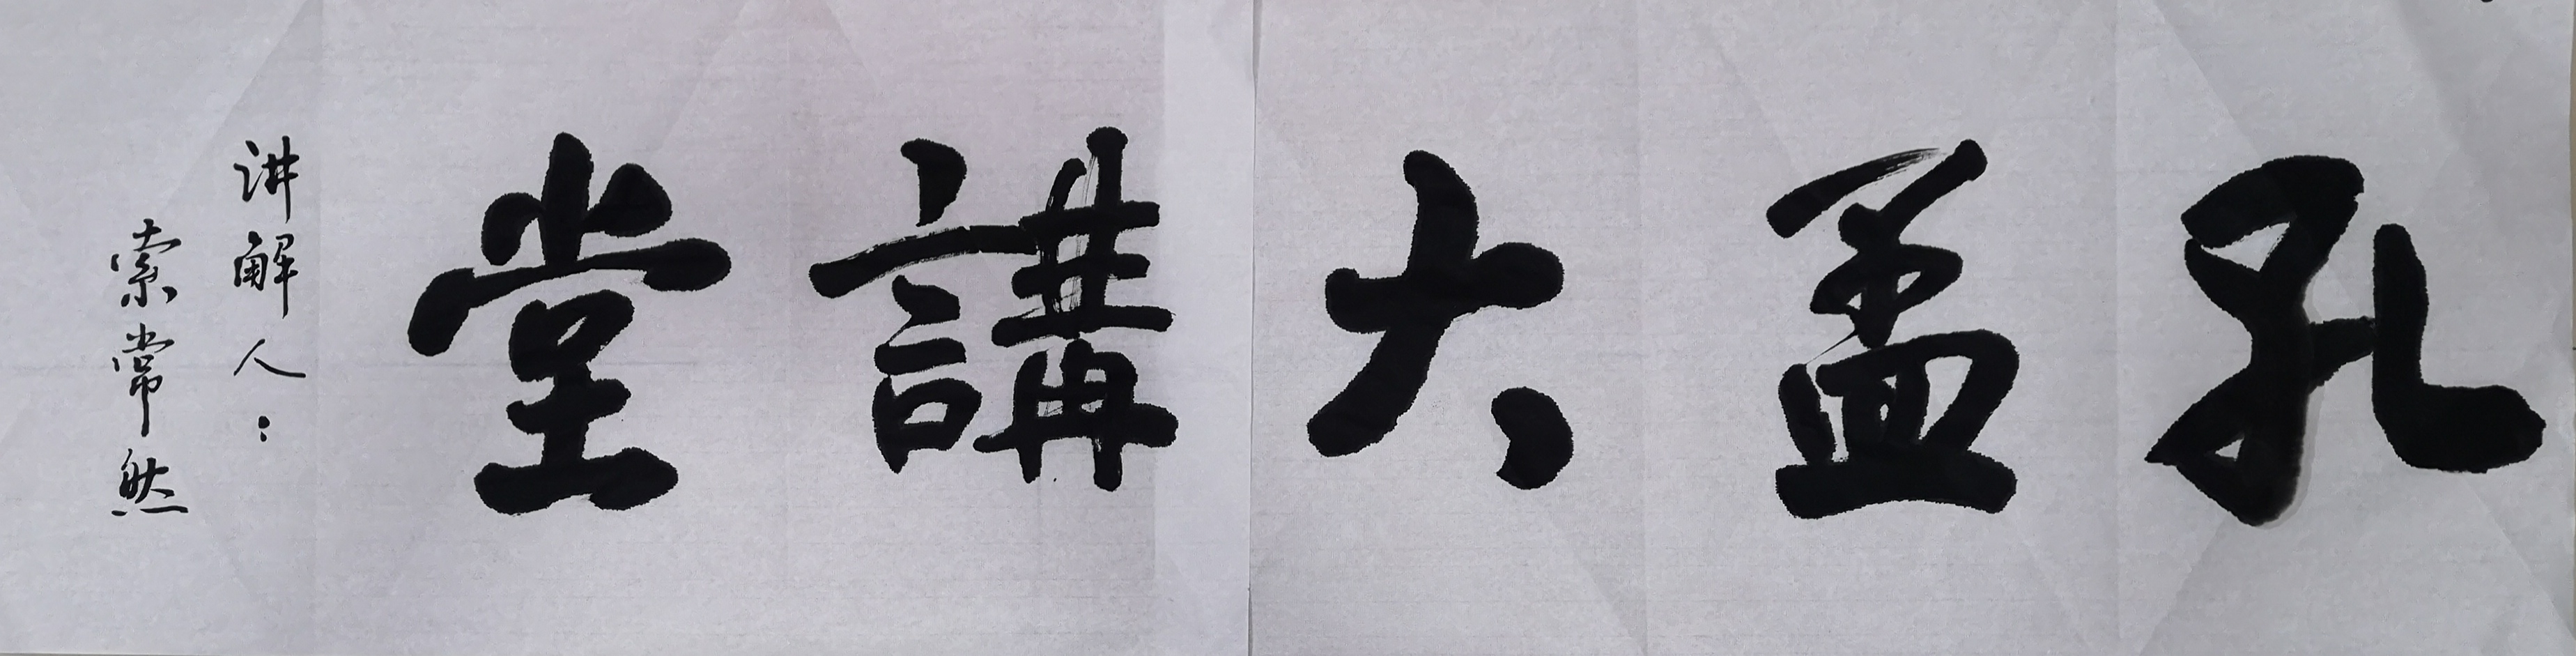 孔孟大講堂
讲解人：
索常然